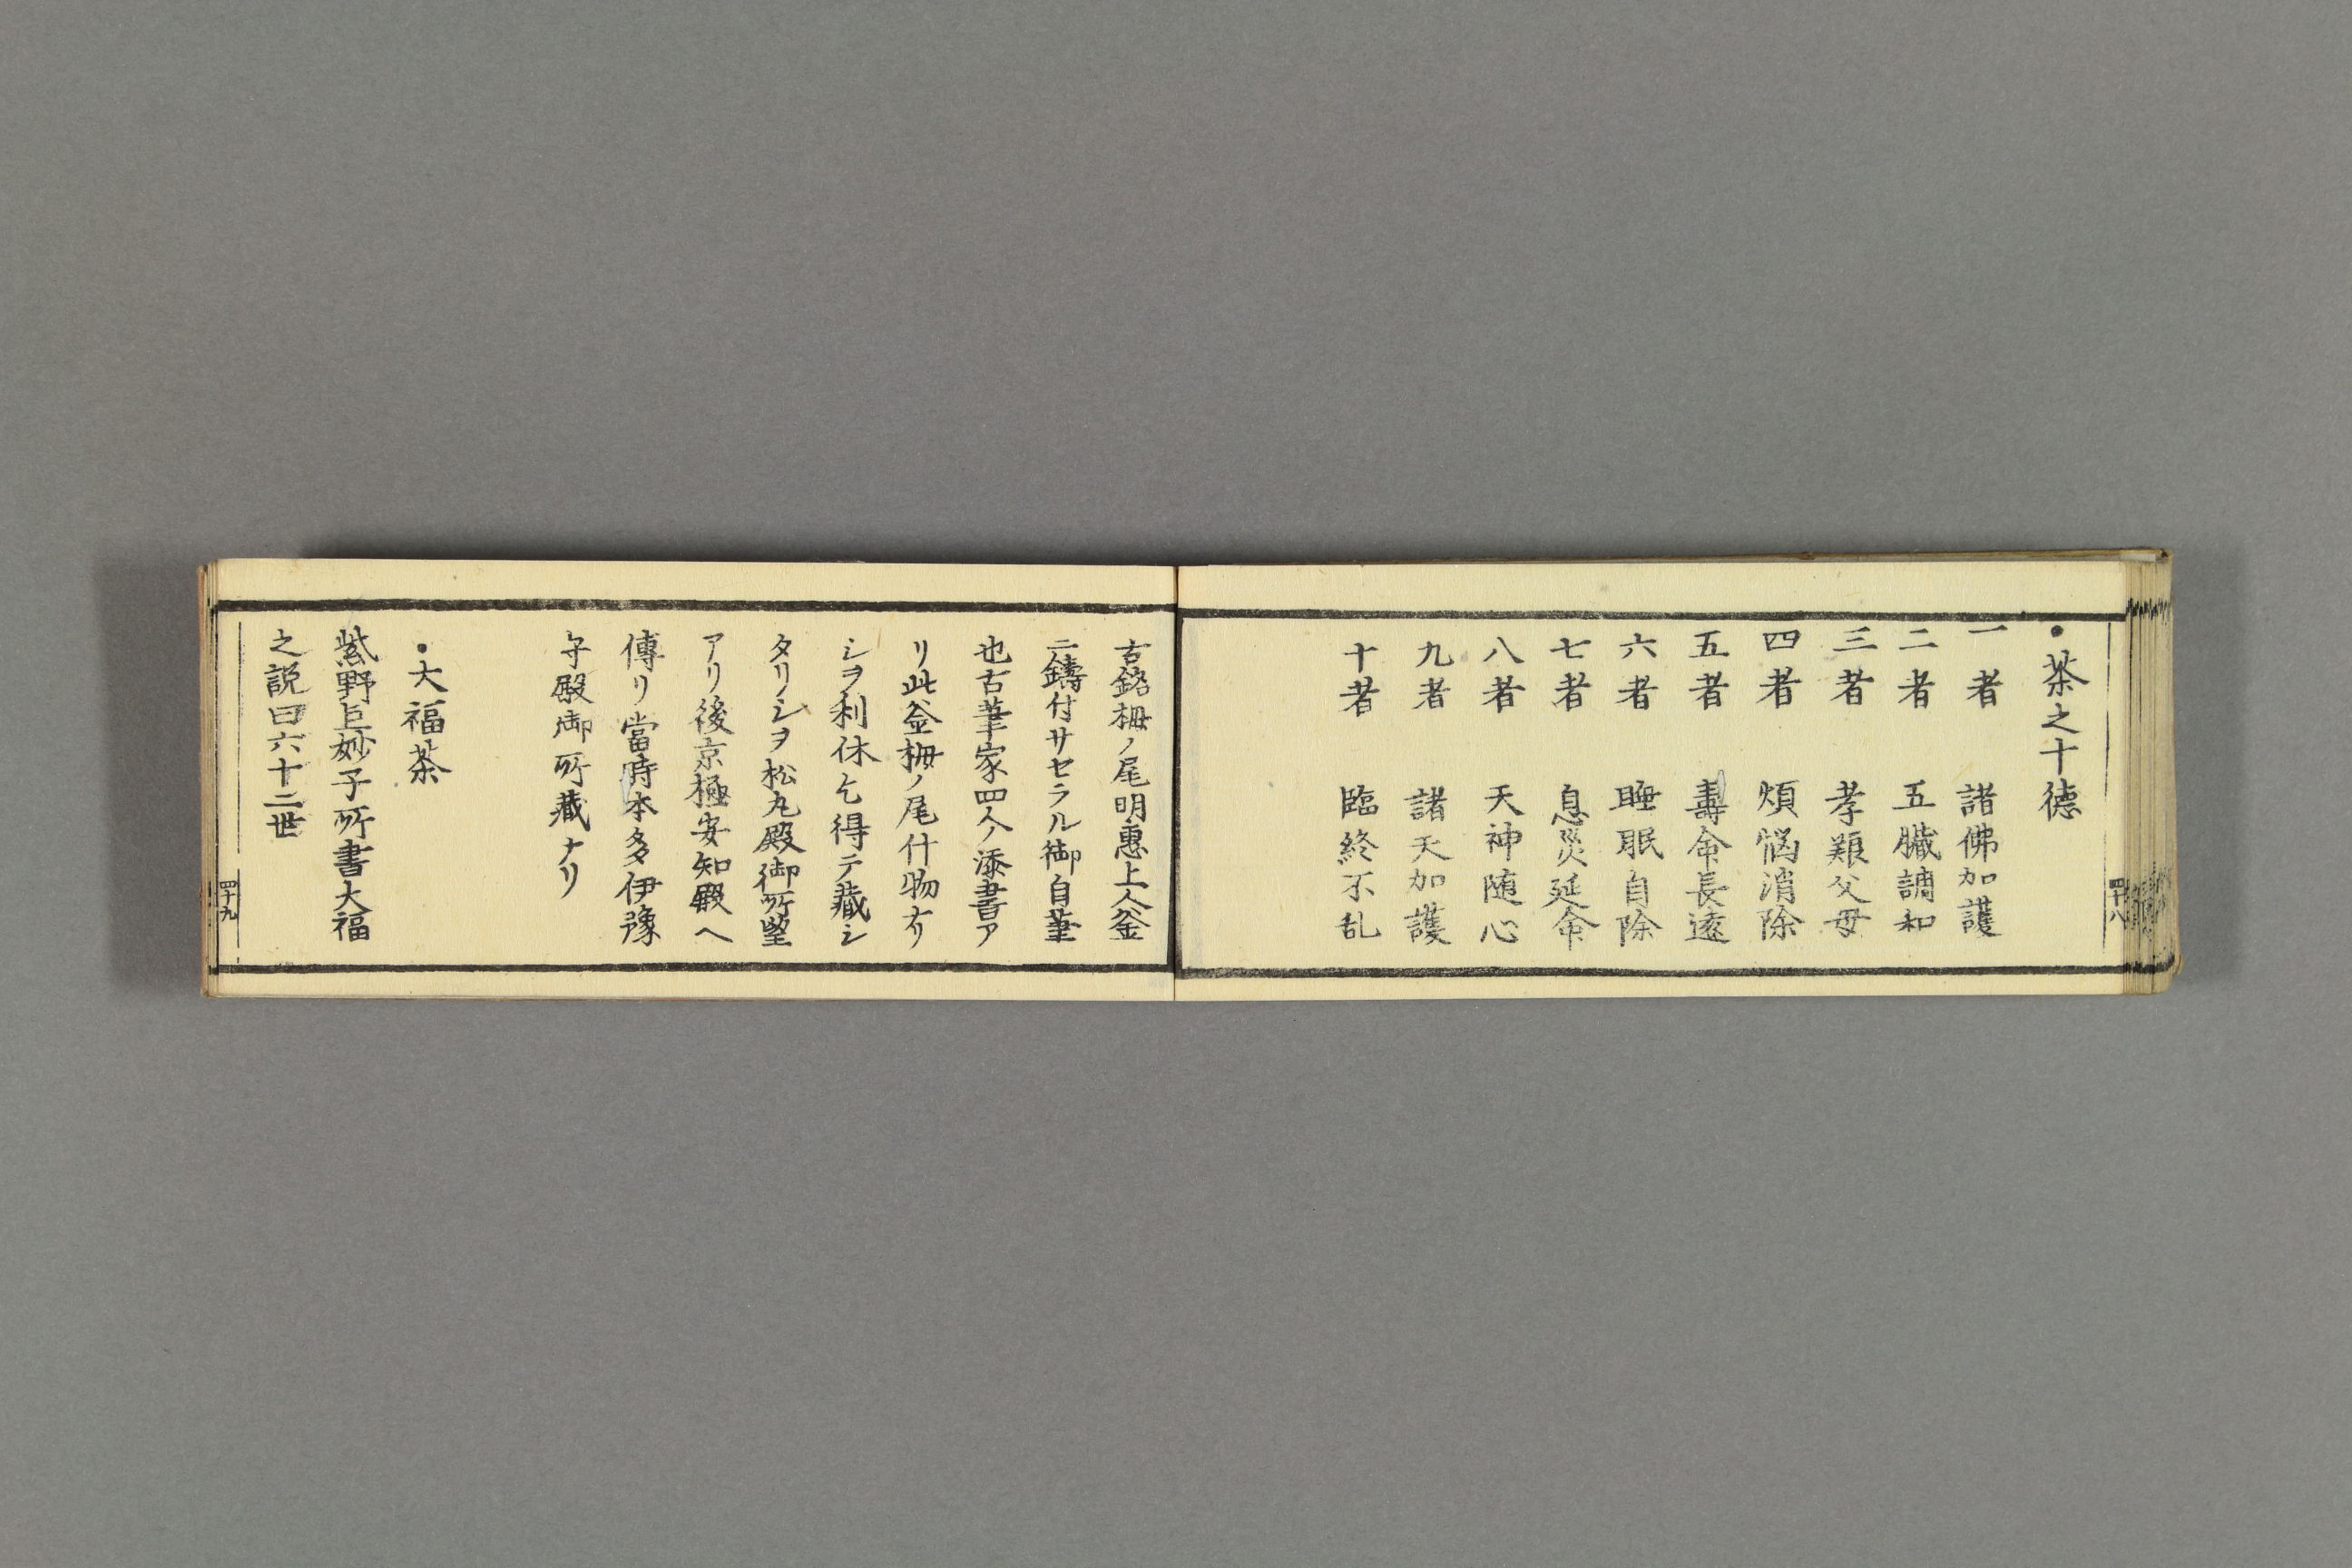 ・茶之十德
一者 諸佛加護
二者 五臟調和
三者 孝順父母
四者 煩悩消除
五者 壽命長遠
六者 睡眠自除
七者 息災延命
八者 天神随心
九者 諸天加護
十者 臨終不乱
四十八
古銘栂ノ尾明惠上人釜
ニ鑄付サセラル御自筆
也古筆家四人ノ添書ア
リ此釜栂ノ尾什物ナリ
シヲ利休乞得テ藏シ
タリシヲ松丸殿御所望
アリ後京極安知殿ヘ
傳リ當時本多伊豫
守殿御所藏ナリ
・大福茶
紫野巨妙子所書大福
之説曰六十二世
四十九